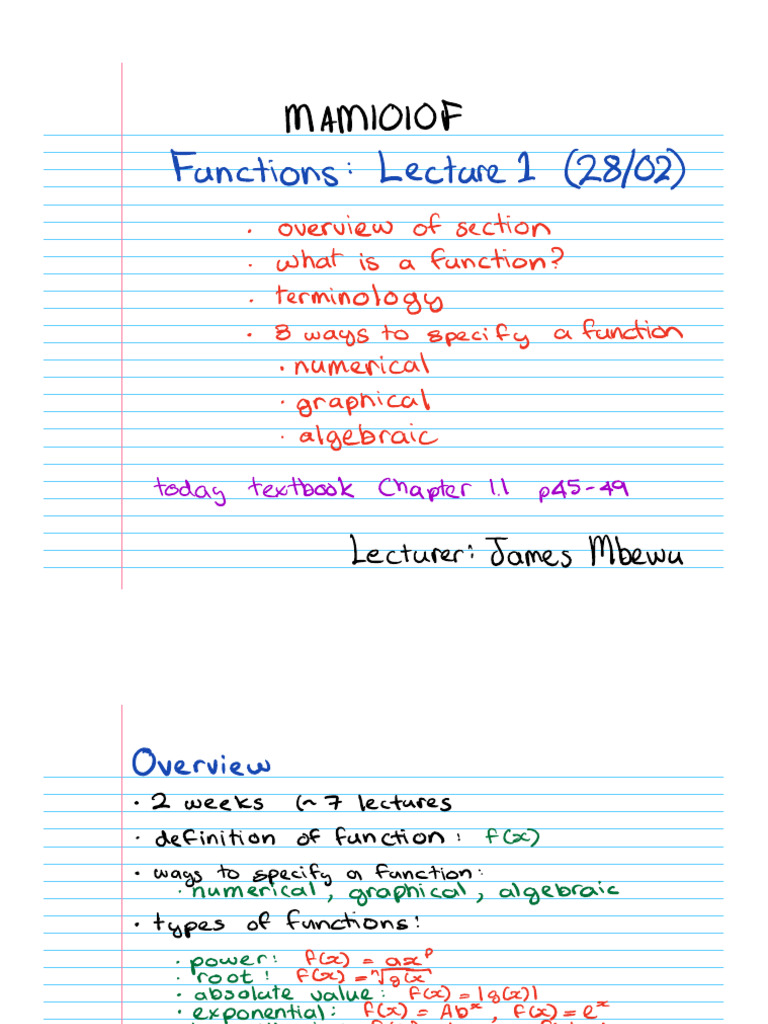 MAM1010F
Functions: Lecture 1 (28/02)
· overview of section
· what is a function?
· terminology
· 3 ways to specify a function
· numerical
· graphical
· algebraic
today textbook Chapter 1.1 p45-49
Lecturer: James Mbewu
Overview
· 2 weeks (~ 7 lectures
· definition of function: f(x)
· ways to specify a function:
· numerical, graphical, algebraic
· types of functions:
· power: f(x) = axᵖ
· root: f(x) = ⁿ√g(x)
· absolute value: f(x) = |g(x)|
· exponential: f(x) = Abˣ, f(x) = eˣ